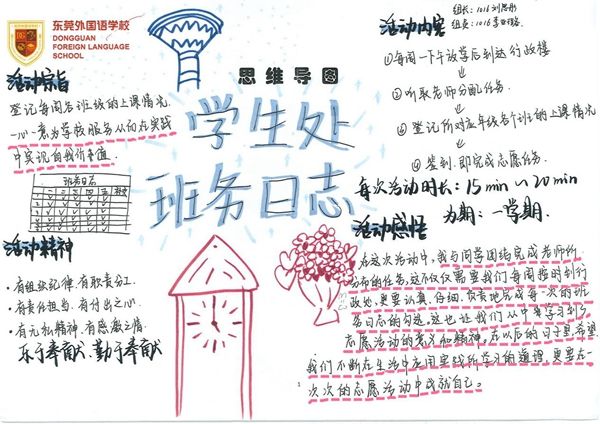 东莞外国语学校
DONGGUAN
FOREIGN LANGUAGE
SCHOOL
思维导图
学生处
班务日志
活动宗旨
登记每周各班级的上课情况
一心一意为学校服务从而在实践
中实现自我价值
班务日志
一 二 三 四 五
活动精神
·有组织纪律 有职责分工.
·有责任担当.有付出之心.
·有无私精神.有感激之情.
乐于奉献 勤于奉献
组长:1016
组员:1016
活动内容
①每周一下午放学后到达行政楼
②听取老师分配任务.
③登记所对应年级各个班主的上课情况
④签到.即完成志愿任务.
每次活动时长:15min~20min
为期:一学期.
活动感悟
在这次活动中,我与同学团结完成老师所
分布的任务,这不仅仅需要我们每周按时到行
政处,更要认真、仔细、负责地完成每一次的班
务日志的勾选。这也让我们从中学习到了
志愿活动的意义和精神。在以后的日子里,希望
我们不断在生活中应用实践所学习的道理,更要在一
次次的志愿活动中成就自己。